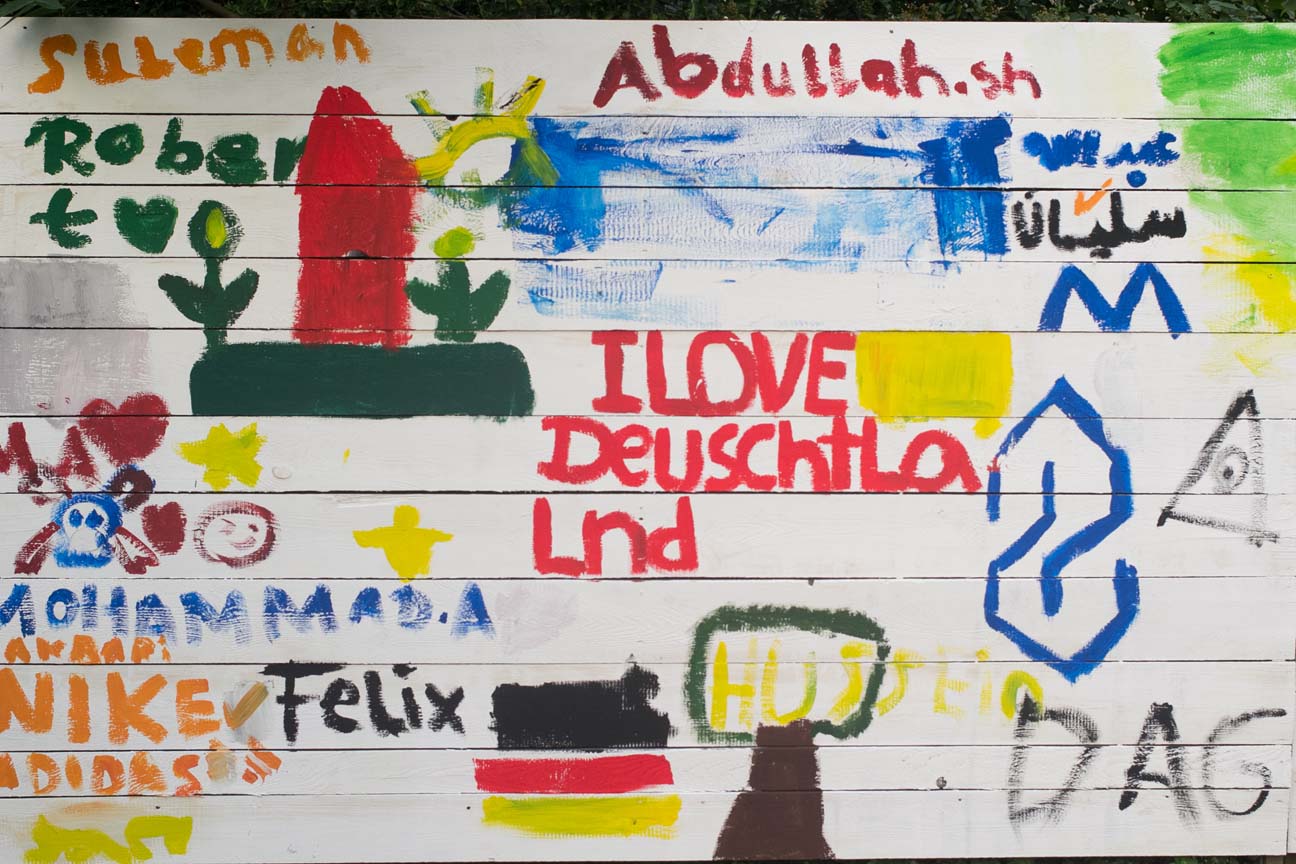 Suleman
Abdullah.sh
Rober
t
سليمان
M
I LOVE
DeuschtLa
Lnd
MA
MOHAMMAD.A
AKBARI
NIKE
Felix
HUSSEin
ADIDAS
DAG